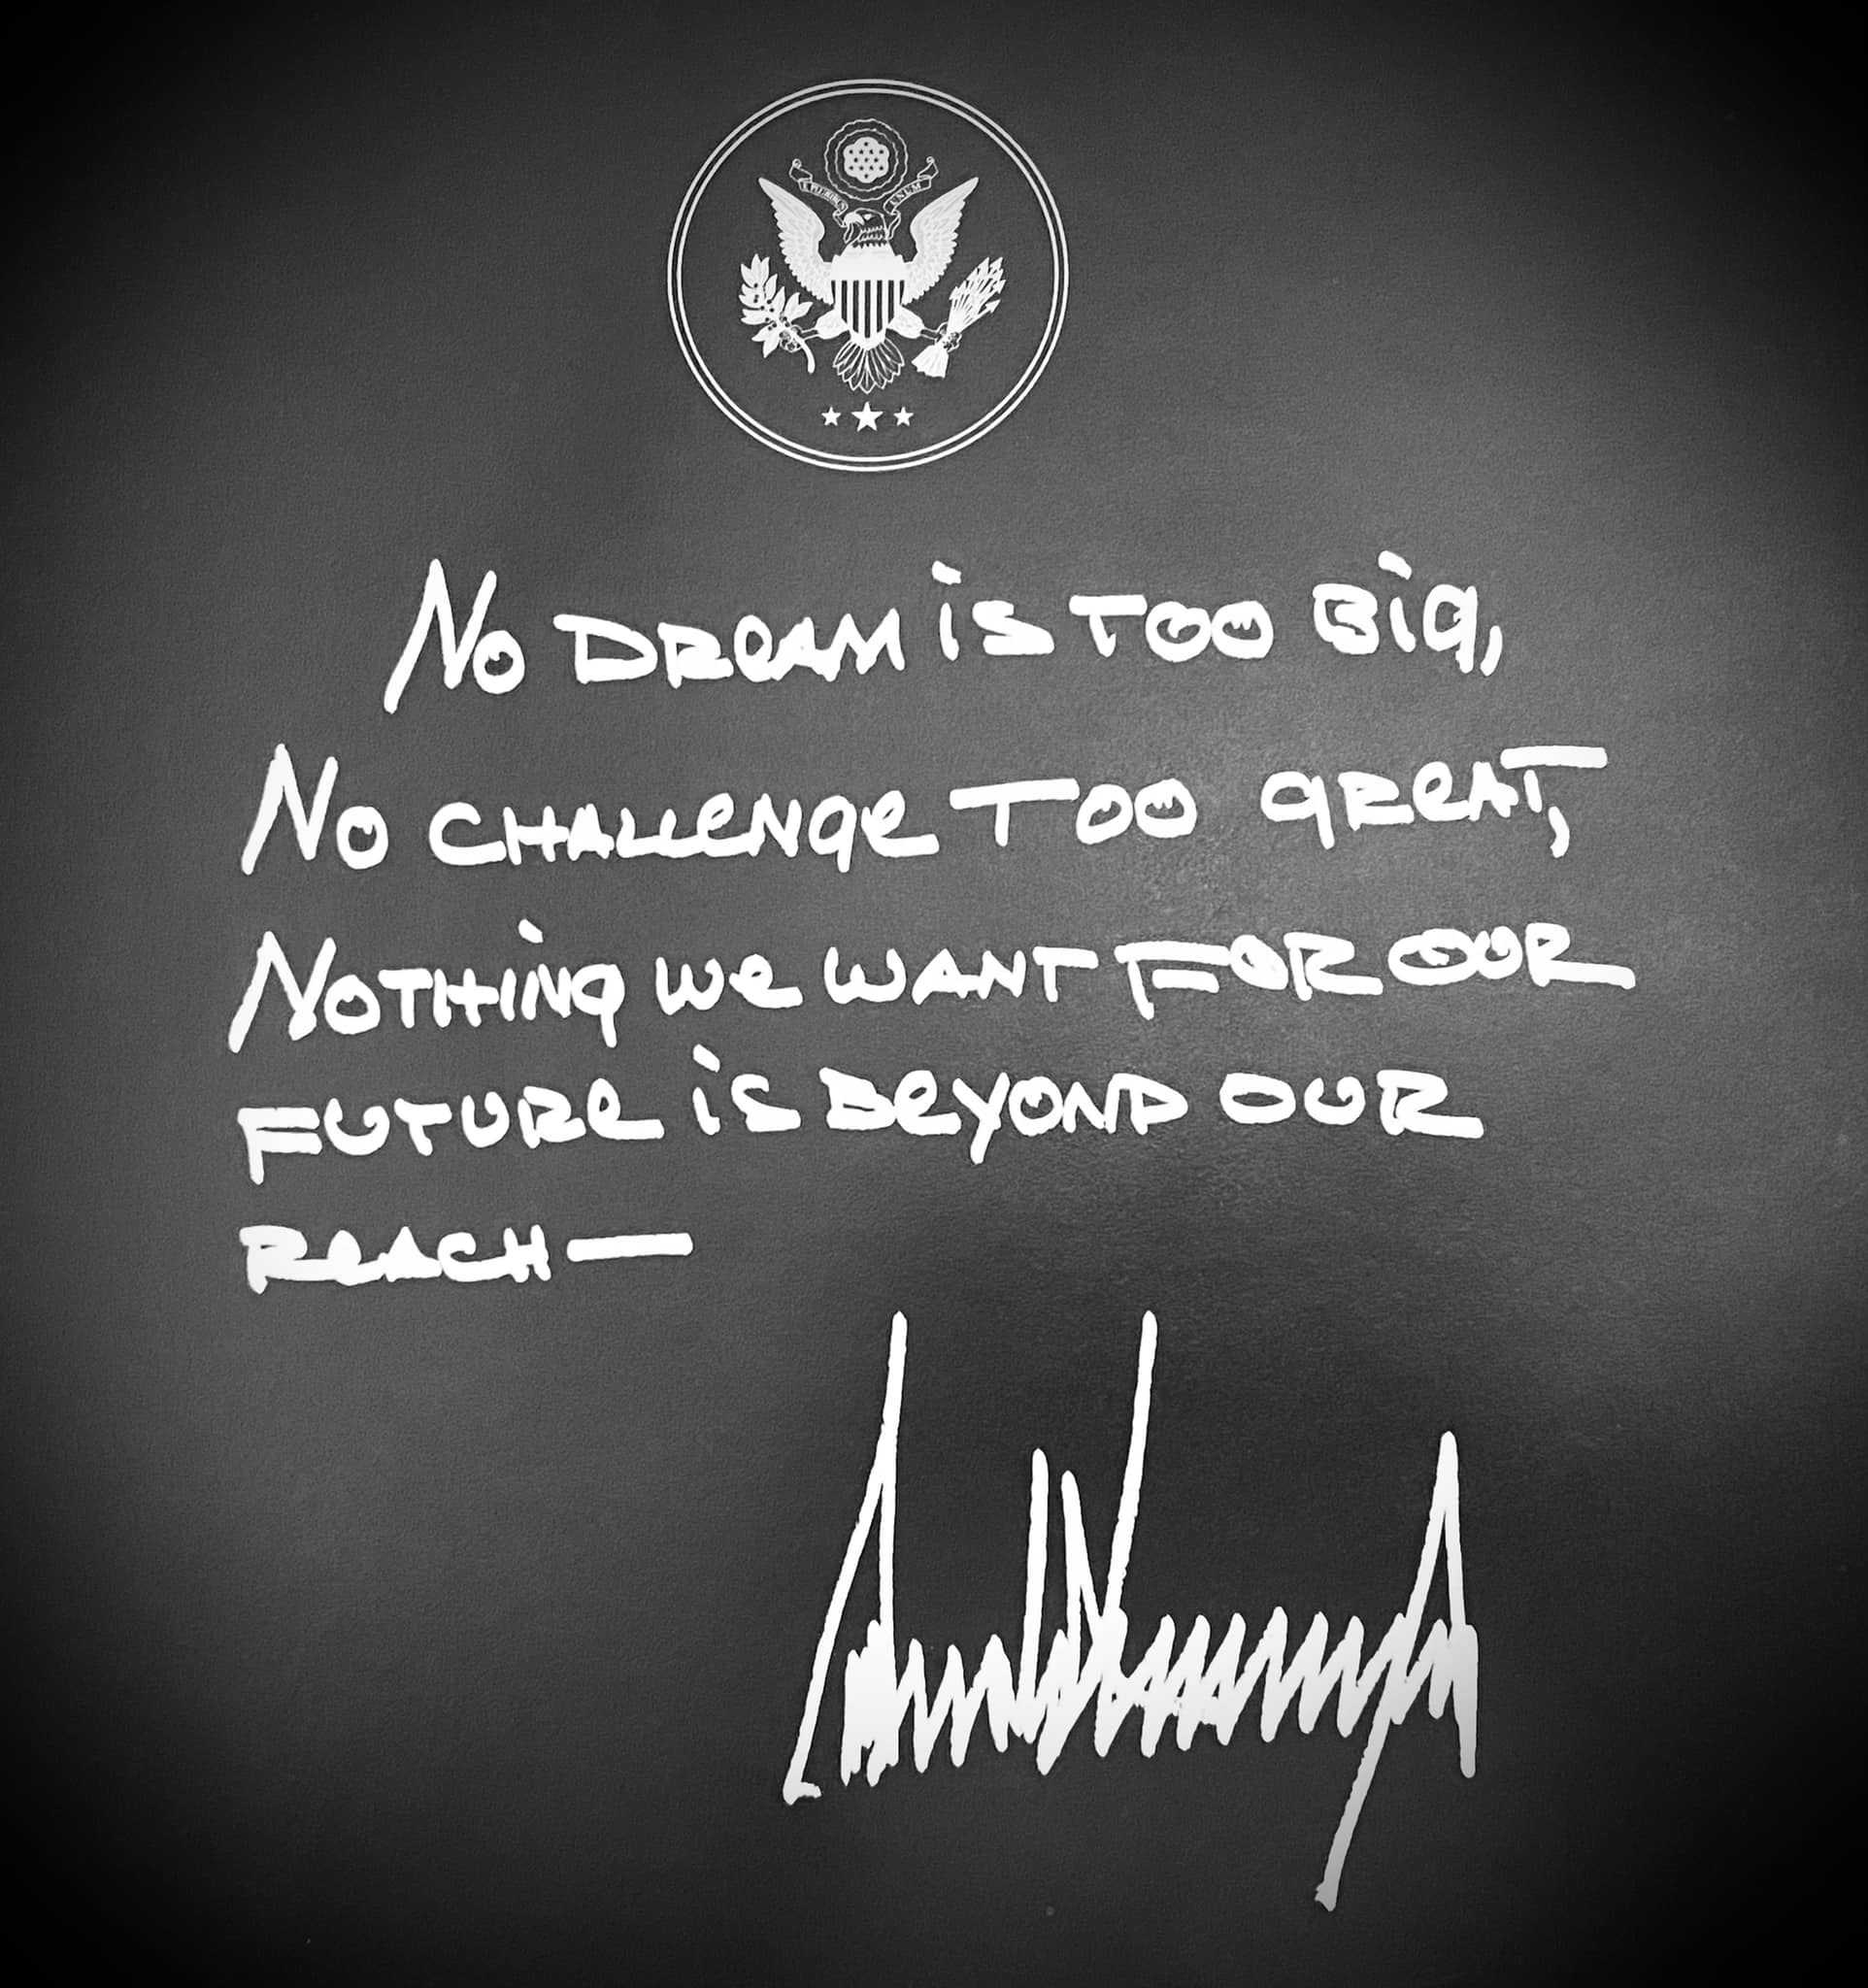 No DReAM iS TOO Big,
No CHALLeNge TOO gReAT,
NOTHiNg we WANT FOR OUR
FUTURe iS BeYOND OUR
ReACH —